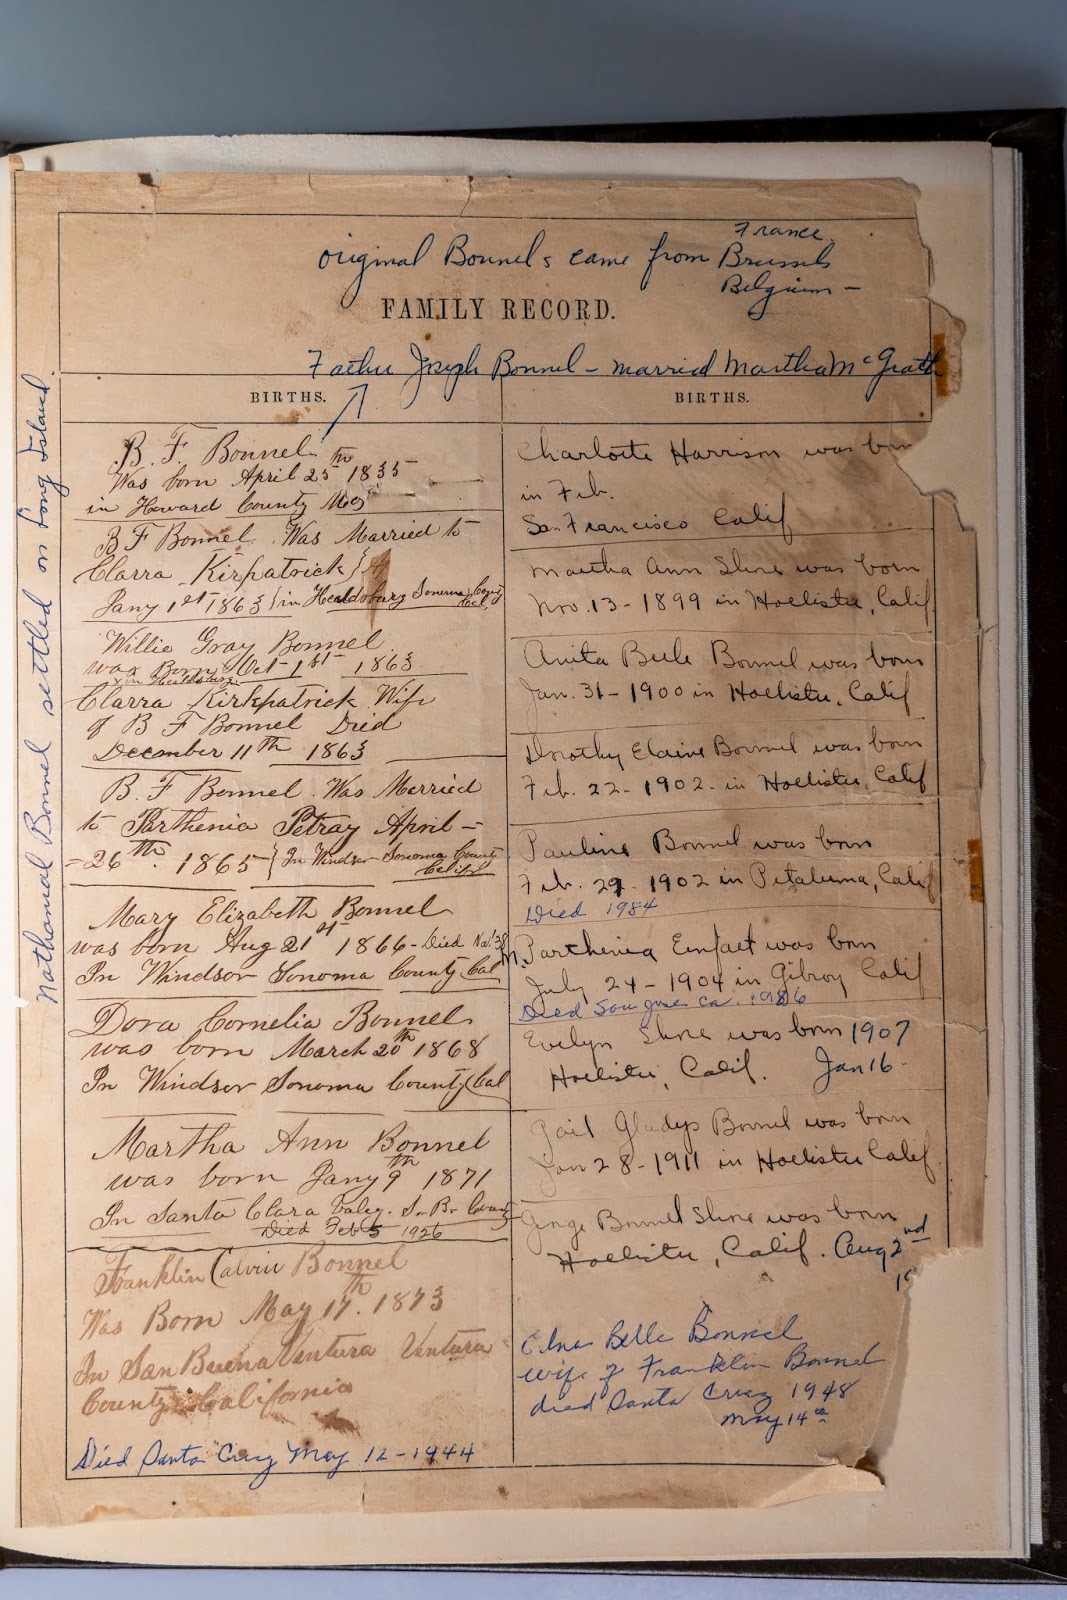 France
original Bonnels came from Brussels
Belgium -
FAMILY RECORD.
Father Joseph Bonnel - married Martha McGrath
BIRTHS.
B. F. Bonnel
Was born April 25th 1835
in Howard County Mo
B F Bonnel Was Married to
Clarra Kirpatrick
Jany 1st 1863 in Healdsburg Sonoma County Cal.
Willie Gray Bonnel
was Born Oct 1st 1863
in Healdsburg
Clarra Kirkpatrick Wife
of B F Bonnel Died
December 11th 1863
B. F Bonnel Was Married
to Parthenia Petray April -
- 26th 1865 - In Windsor Sonoma County
Calif
Mary Elizabeth Bonnel
was born Aug 21st 1866 - Died
In Windsor Sonoma County Cal
Dora Cornelia Bonnel
was born March 20th 1868
In Windsor Sonoma County Cal
Martha Ann Bonnel
was born Jany 9th 1871
In Santa Clara Valey. S. B. County
Died Feb 5 1926
Franklin Calvin Bonnel
Was Born May 17th. 1873
In San Buena Ventura Ventura
County California
Died Santa Cruz May 12 - 1944
BIRTHS.
Charlotte Harrison was born
in Feb.
San Francisco Calif
Martha Ann Shne was born
Nov. 13 - 1899 in Hollister, Calif
Anita Bele Bonnel was born
Jan. 31 - 1900 in Hollister, Calif
Dorothy Elaine Bonnel was born
Feb. 22 - 1902 - in Hollister, Calif
Pauline Bonnel was born
Feb. 29 - 1902 in Petaluma, Calif
Died 1984
M. Parthenia was born
July 24 - 1904 in Gilroy Calif
Died San Jose Ca. 1986
Evelyn Shne was born 1907
Hollister, Calif. Jan 16 -
Gail Gladys Bonnel was born
Jan 28 - 1911 in Hollister Calif.
George Bonnel Shne was born
Hollister, Calif. Aug 2nd
19
Edna Belle Bonnel
wife of Franklin Bonnel
died Santa Cruz 1948
May 14th
Nathanial Bonnel settled on Long Island.